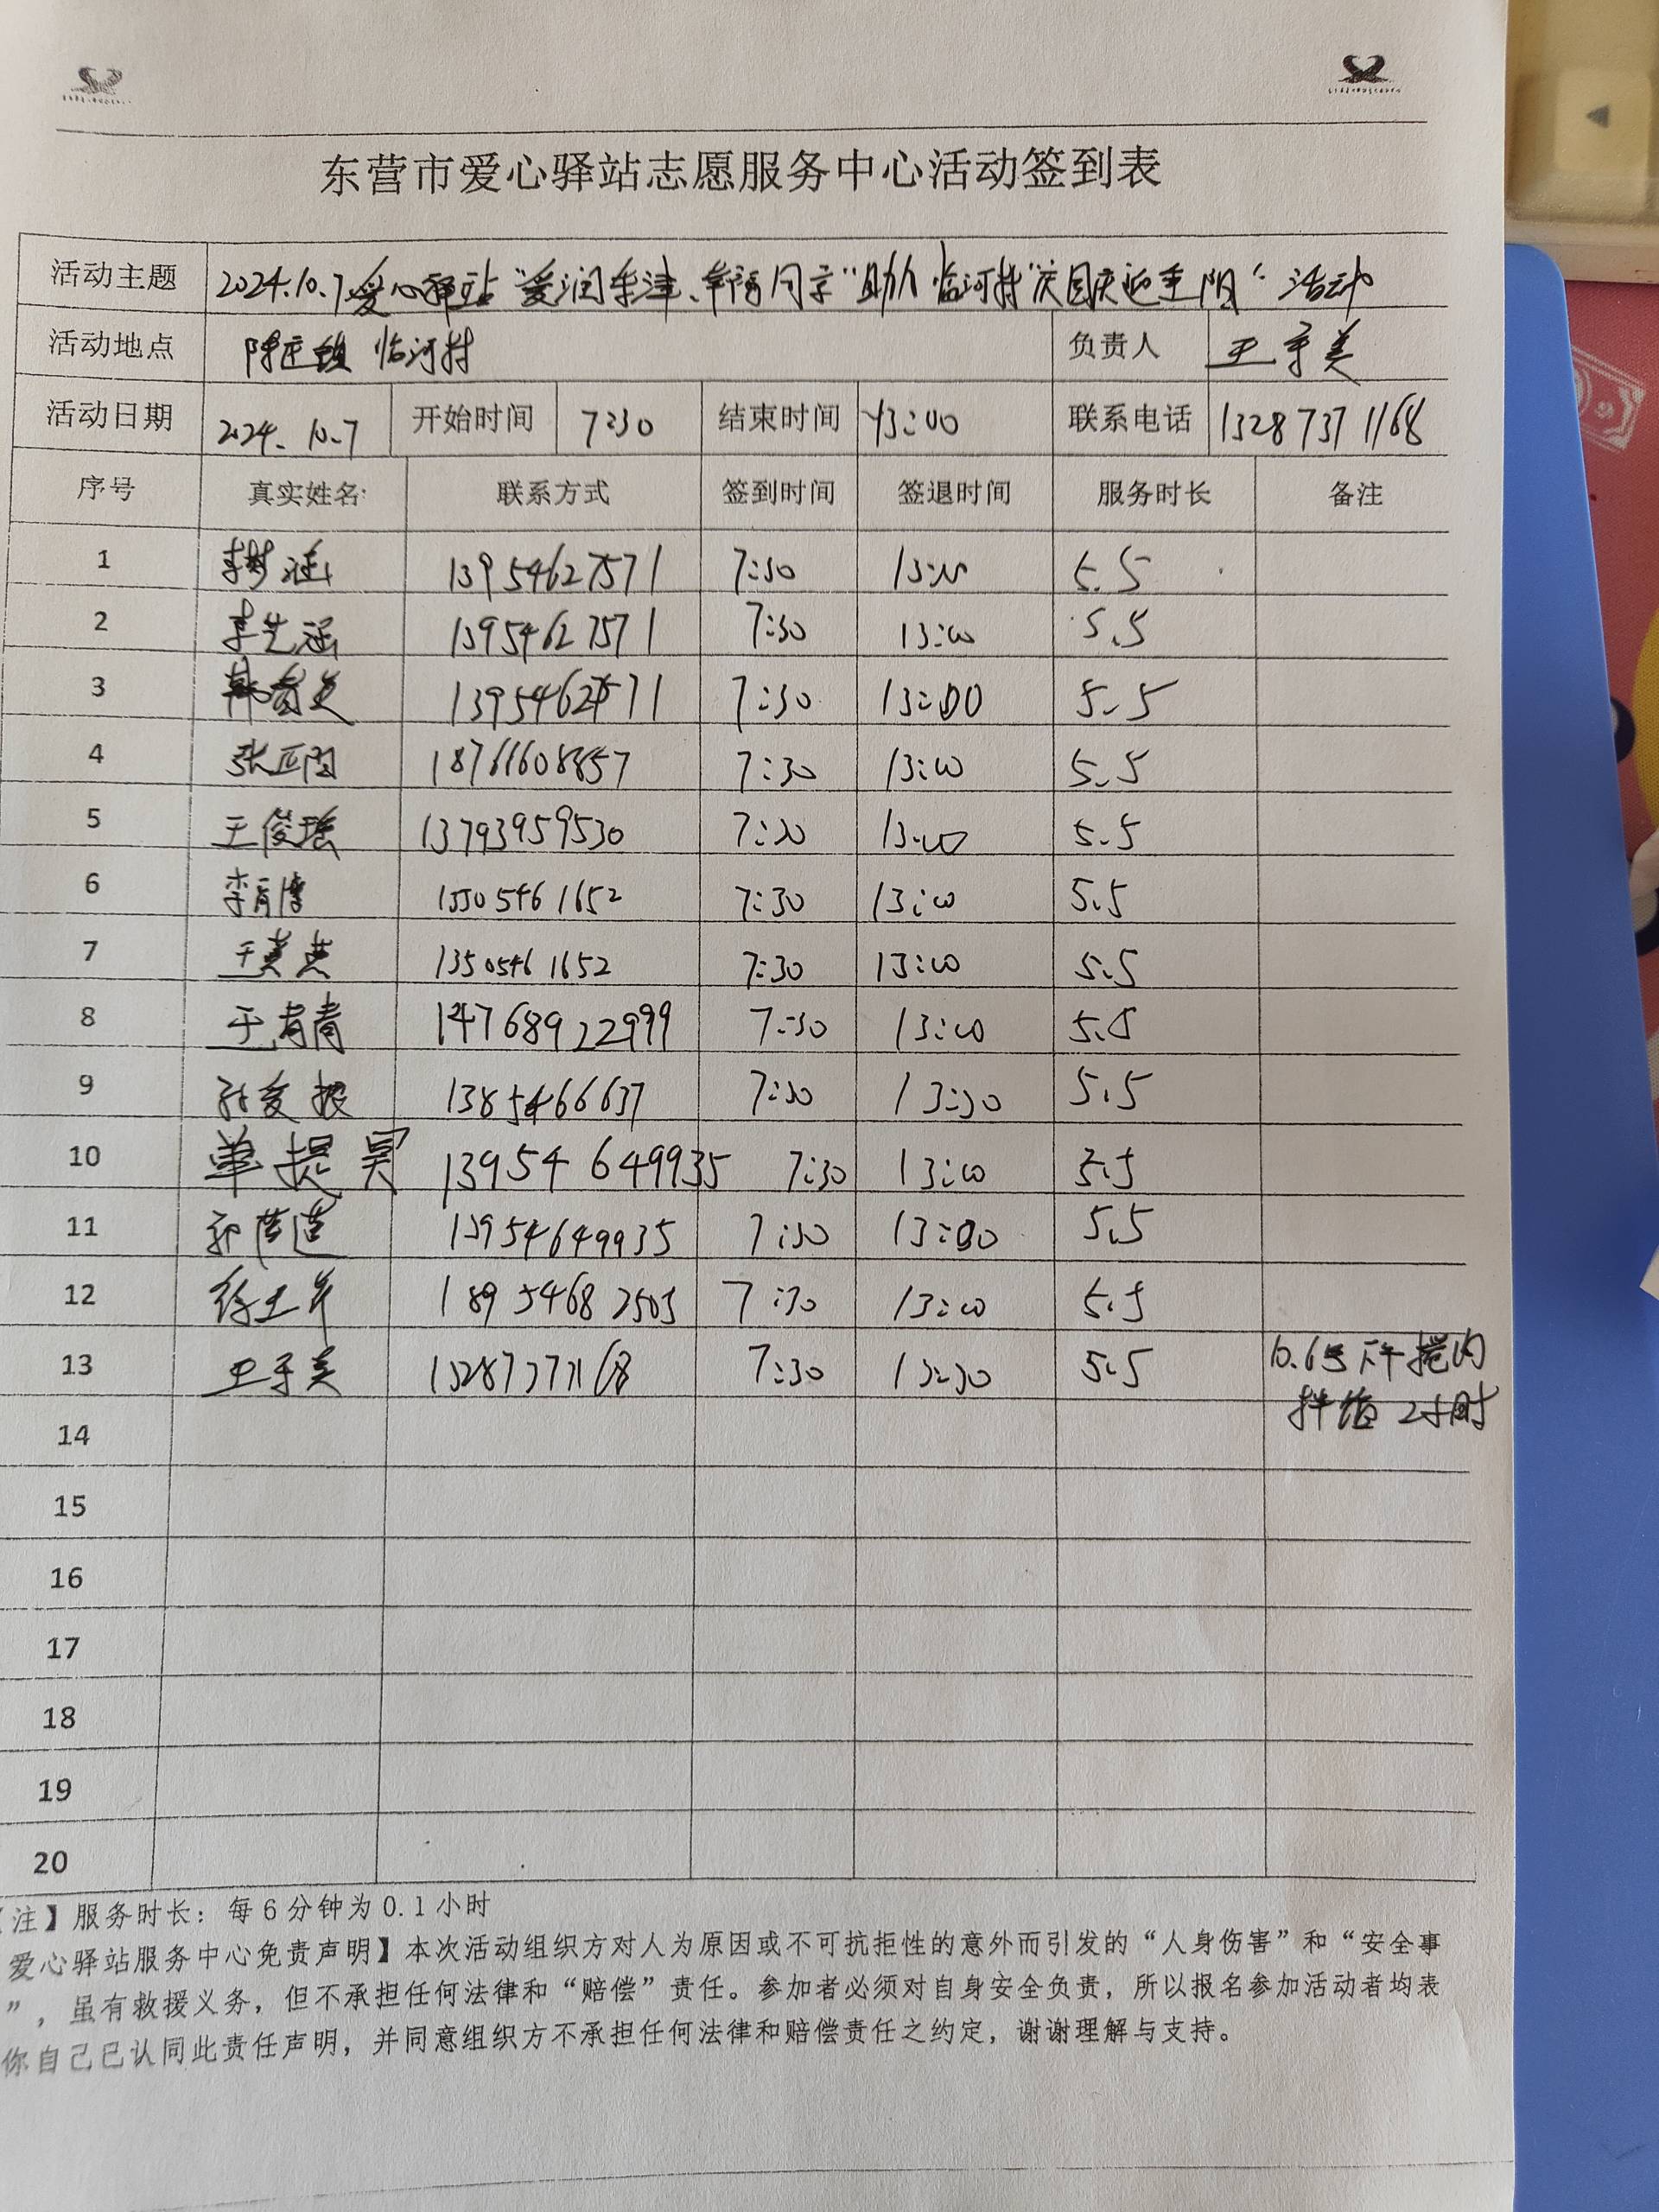 东营市爱心驿站志愿服务中心活动签到表
活动主题 2024.10.7爱心驿站"爱润东津、幸福同享"助力临河村"庆国庆迎重阳"活动
活动地点 陈庄镇 临河村 负责人 王秀美
活动日期 2024.10.7 开始时间 7:30 结束时间 13:00 联系电话 13287371168
序号 真实姓名 联系方式 签到时间 签退时间 服务时长 备注
1 李梦涵 13954627571 7:30 13:00 5.5
2 李先涵 13954627571 7:30 13:00 5.5
3 13954627571 7:30 13:00 5.5
4 张亚南 18761608857 7:30 13:00 5.5
5 王俊瑶 13793959530 7:30 13:00 5.5
6 李 博 13505461652 7:30 13:00 5.5
7 13505461652 7:30 13:00 5.5
8 14768922999 7:30 13:00 5.5
9 孙爱 1385466637 7:30 13:30 5.5
10 单提昊 13954649935 7:30 13:00 5.5
11 13954649935 7:30 13:00 5.5
12 徐 18954682503 7:30 13:00 5.5
13 王秀美 13287371168 7:30 13:30 5.5 10.6号下午 肉
14 拌馅 2小时
15
16
17
18
19
20
注】服务时长：每6分钟为0.1小时
爱心驿站服务中心免责声明】本次活动组织方对人为原因或不可抗拒性的意外而引发的“人身伤害”和“安全事
”，虽有救援义务，但不承担任何法律和“赔偿”责任。参加者必须对自身安全负责，所以报名参加活动者均表
你自己已认同此责任声明，并同意组织方不承担任何法律和赔偿责任之约定，谢谢理解与支持。